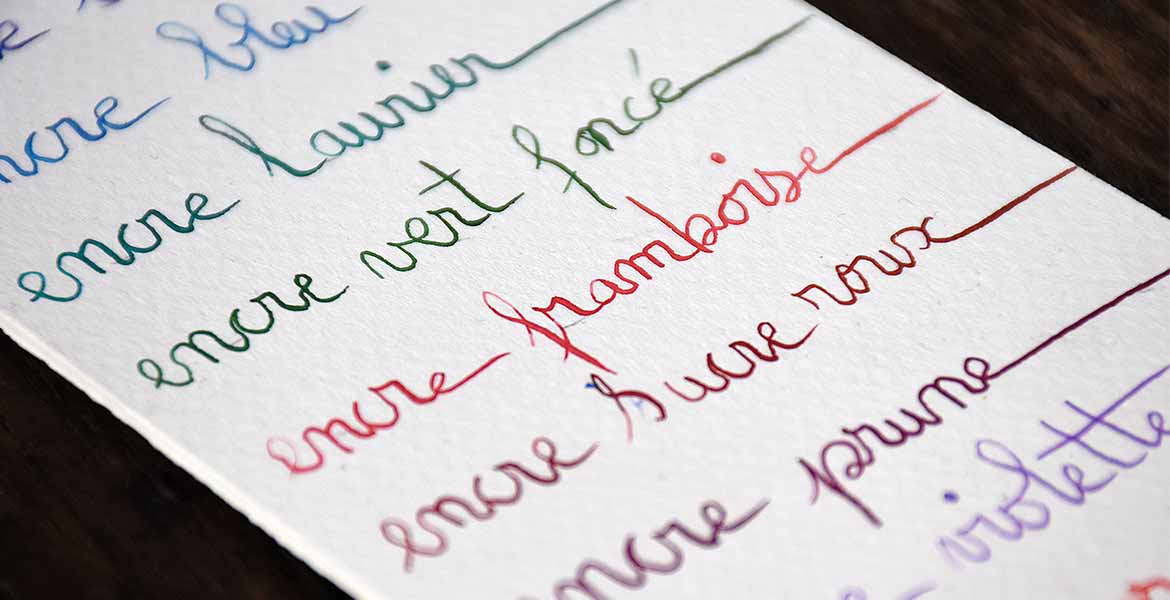 encre bleu
encre Laurier
encre vert foncé
encre framboise
encre Sucre roux
encre prune
violette